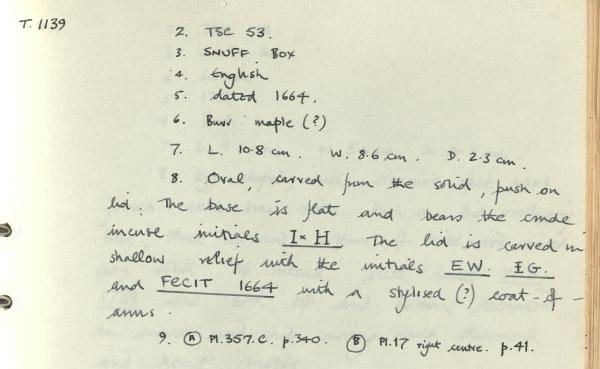 T. 1139
2. TSC 53.
3. SNUFF BOX
4. English
5. dated 1664.
6. Burr maple (?)
7. L. 10.8 cm. W. 8.6 cm. D. 2.3 cm.
8. Oval, carved from the solid, push on
lid. The base is flat and bears the crude
incuse initials I × H The lid is carved in
shallow relief with the initials EW. IG.
and FECIT 1664 with a stylised (?) coat-of-
arms.
9. A Pl.357.C. p.340. B Pl.17 right centre. p.41.